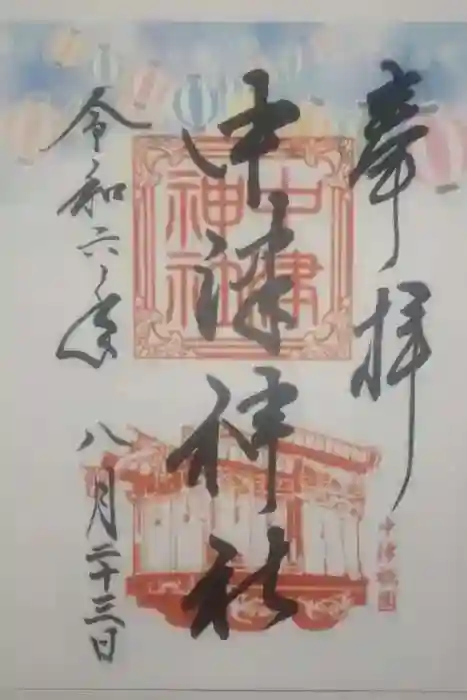 奉拝
中津神社
中津神社
中津祇園
令和六年
八月二十三日